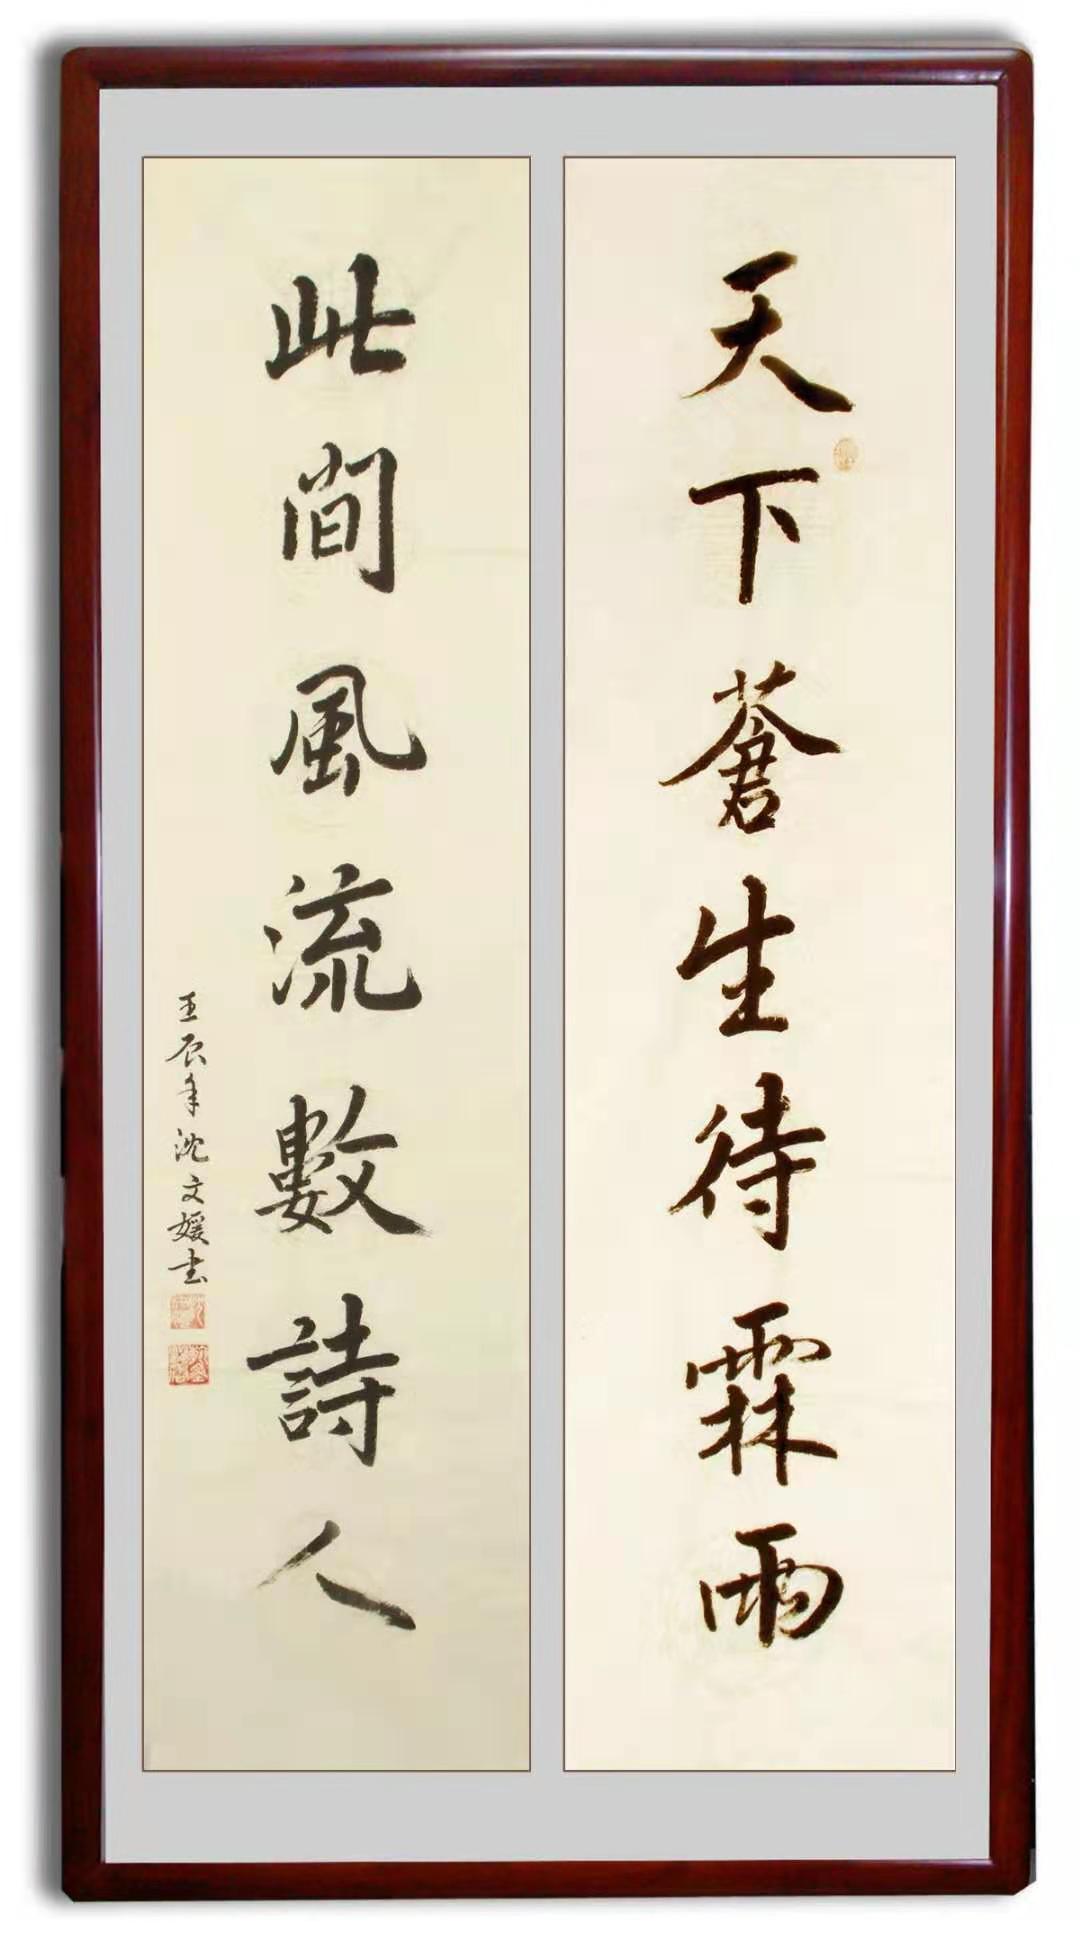 天下蒼生待霖雨
此間風流數詩人
壬辰年沈文媛書